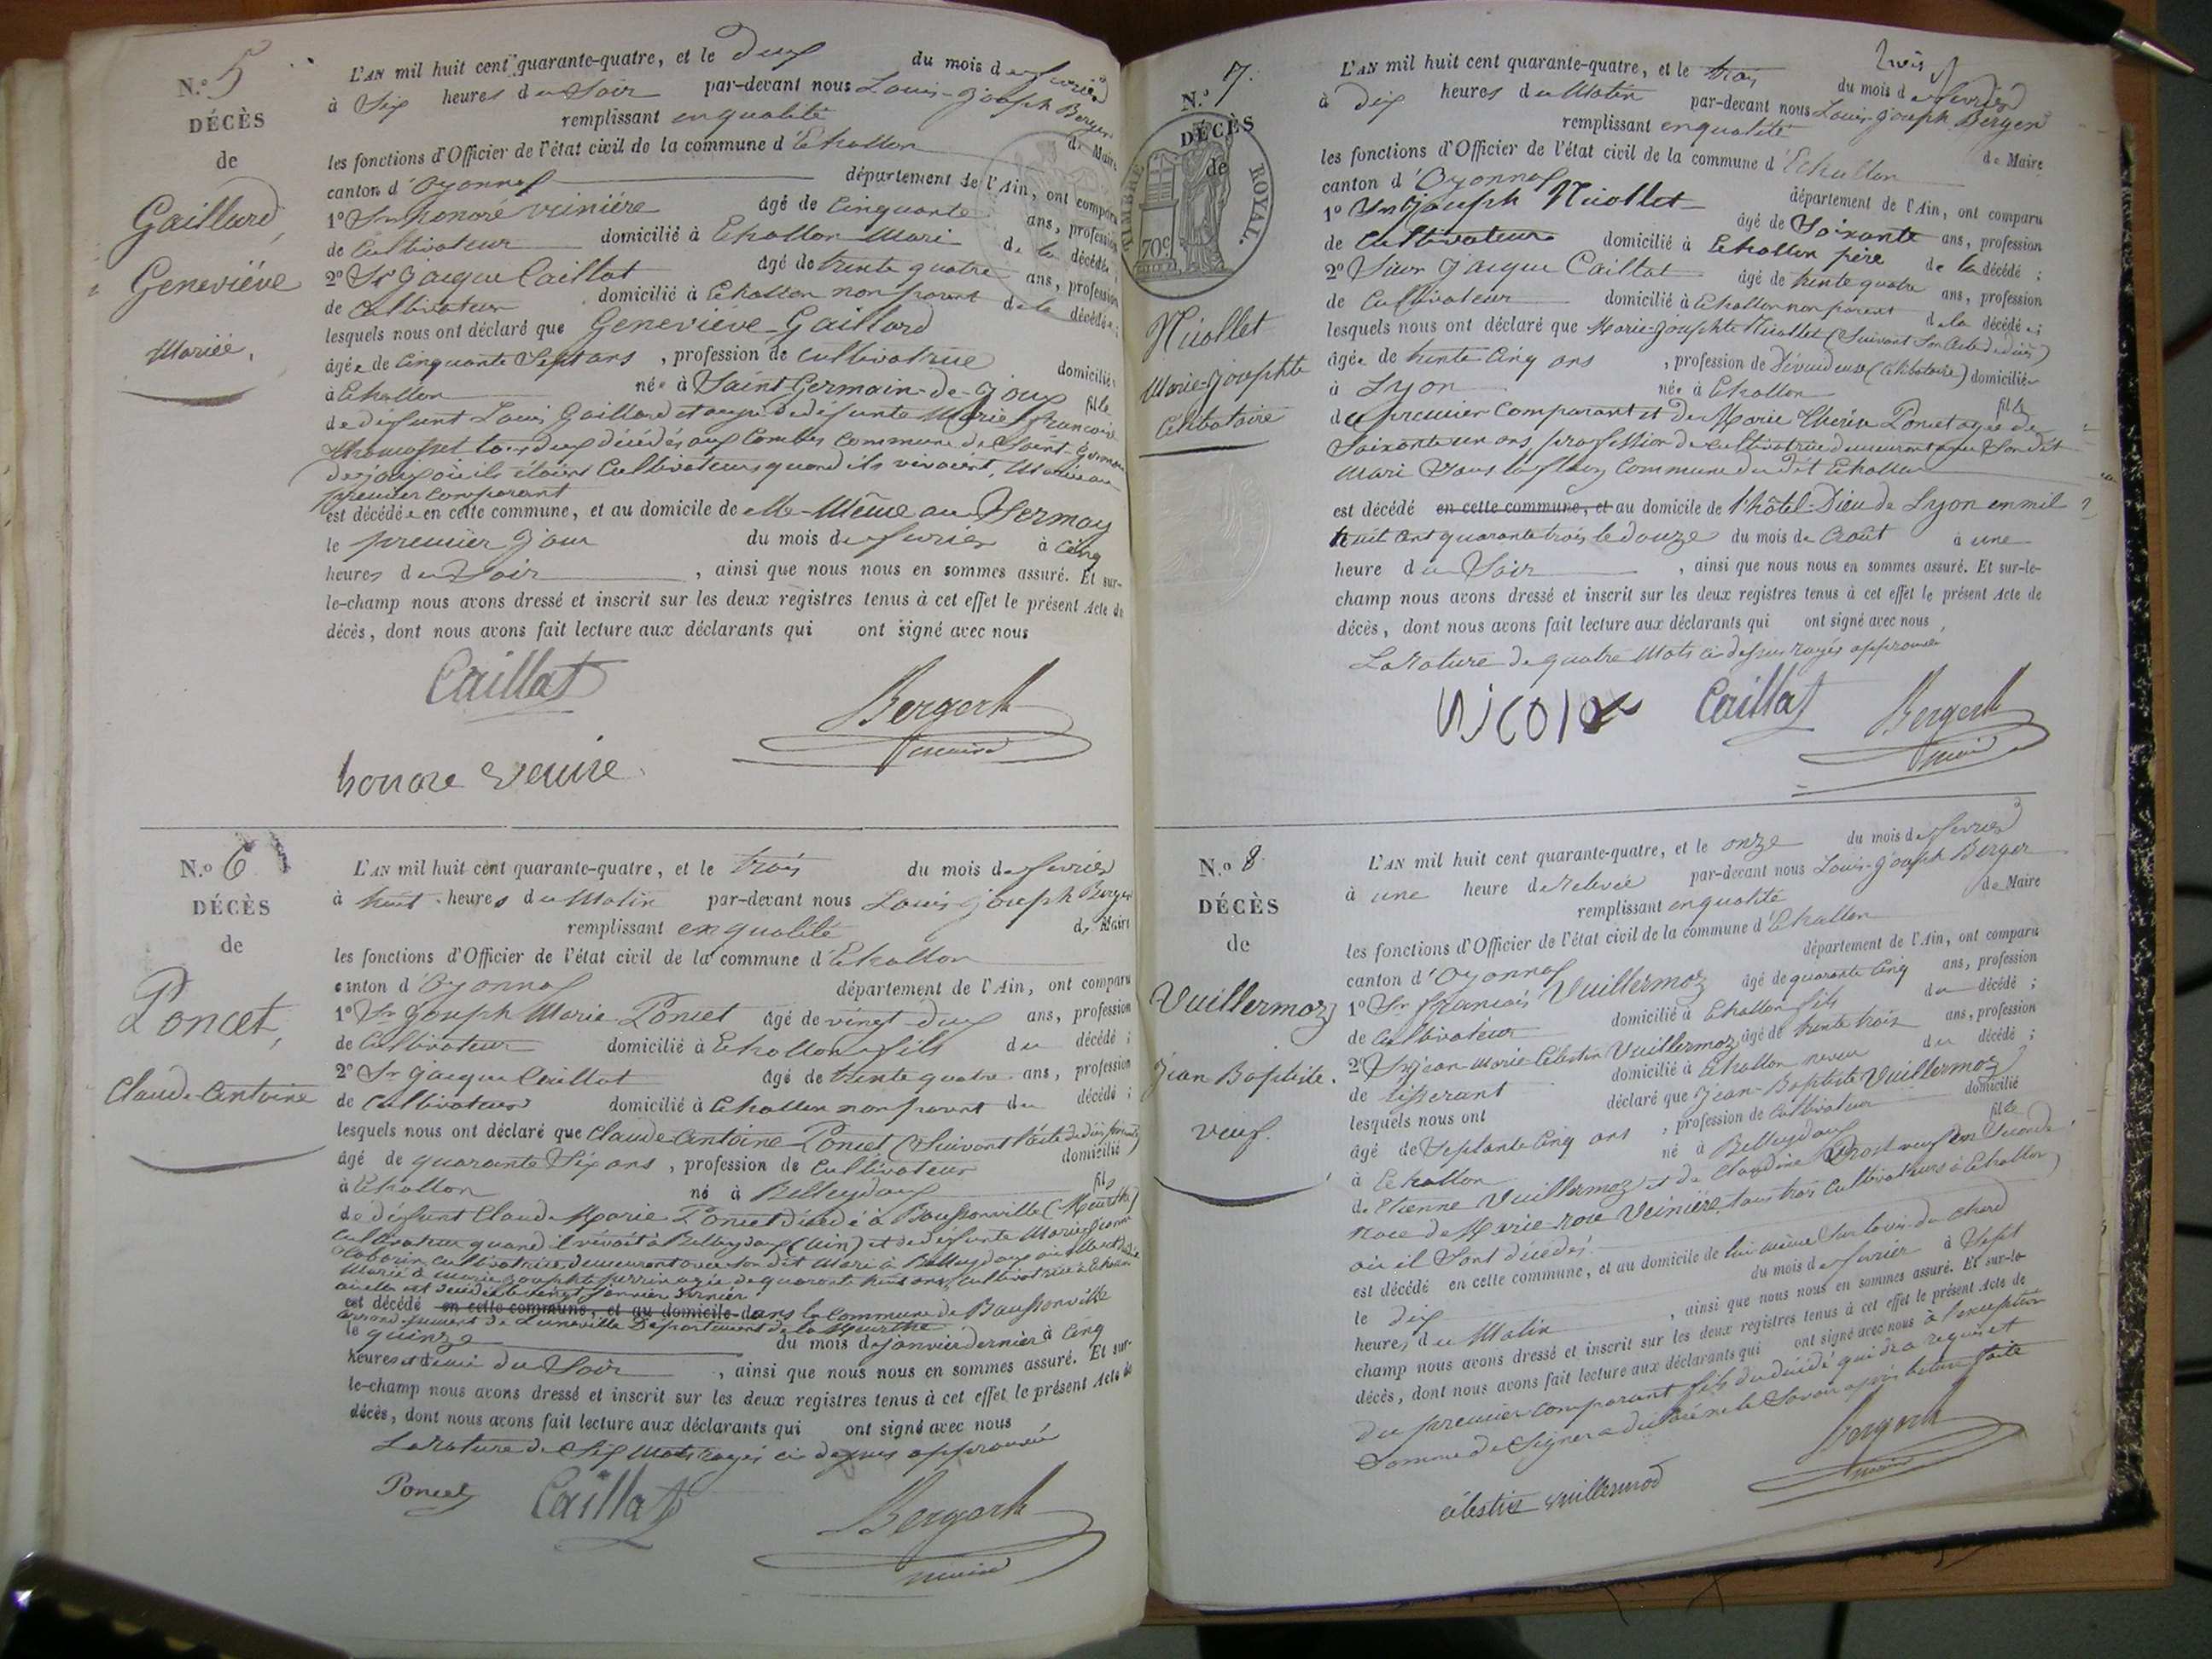 N.º 5
DÉCÈS
de
Gaillard,
Geneviève
Mariée,
L'AN mil huit cent quarante-quatre, et le deux du mois de février
à Six heures du Soir par-devant nous Louis-Joseph Berger
remplissant en qualité de Maire
les fonctions d'Officier de l'état civil de la commune d'Echallon
canton d'Oyonnax département de l'Ain, ont comparu
1º Sr honoré Veinière âgé de Cinquante ans, profession
de Cultivateur domicilié à Echallon Mari de la décédée,
2º Sr Jacque Caillat âgé de trente quatre ans, profession
de Cultivateur domicilié à Echallon non parent de la décédée;
lesquels nous ont déclaré que Geneviève Gaillard
âgée de Cinquante Sept ans, profession de Cultivatrice domiciliée
à Echallon née à Saint-Germain-de-Joux fille
de défunt Louis Gaillard et de défunte Marie Françoise
tous deux décédés aux Combes Commune de Saint-Germain
de joux où ils étoient Cultivateurs quand ils vivoient, Mariée au
premier comparant
est décédée en cette commune, et au domicile de elle-Même au
le premier Jour du mois de février à Cinq
heures du Soir, ainsi que nous nous en sommes assuré. Et sur-
le-champ nous avons dressé et inscrit sur les deux registres tenus à cet effet le présent Acte de
décès, dont nous avons fait lecture aux déclarants qui ont signé avec nous
Caillat
Bergerh
maire
honore Venire
N.º 6
DÉCÈS
de
Poncet,
Claude-Antoine
L'AN mil huit cent quarante-quatre, et le trois du mois de février
à huit heures du Matin par-devant nous Louis Joseph Berger
remplissant en qualité de Maire
les fonctions d'Officier de l'état civil de la commune d'Echallon
canton d'Oyonnax département de l'Ain, ont comparu
1º Sr Joseph Marie Poncet âgé de vingt deux ans, profession
de Cultivateur domicilié à Echallon fils du décédé;
2º Sr Jacque Caillat âgé de trente quatre ans, profession
de Cultivateur domicilié à Echallon non parent du décédé;
lesquels nous ont déclaré que Claude-Antoine Poncet (Suivant l'acte de
âgé de quarante Six ans, profession de Cultivateur domicilié
à Echallon né à Belleydoux fils
de défunt Claude Marie Poncet décédé à Baussonville (Meurthe)
Cultivateur quand il vivoit à Belleydoux (Ain) et de défunte Marie
Cultivatrice demeurant avec son dit Mari à Belleydoux
Marié à Marie Josephte agée de quarante huit ans, Cultivatrice à Echallon
où elle est décédée le vingt Janvier dernier
est décédé en cette commune, et au domicile dans la Commune de Baussonville
arrondissement de Luneville Département de la Meurthe
le quinze du mois de Janvier dernier à Cinq
heures et demie du Soir, ainsi que nous nous en sommes assuré. Et sur-
le-champ nous avons dressé et inscrit sur les deux registres tenus à cet effet le présent Acte de
décès, dont nous avons fait lecture aux déclarants qui ont signé avec nous
La rature de Six mots rayés ci dessus approuvée
Poncet
Caillat
Bergerh
maire
N.º 7.
DÉCÈS
de
TIMBRE ROYAL.
70c
Nicollet
Marie-Josephte
Célibataire
trois
L'AN mil huit cent quarante-quatre, et le trois du mois de février
à dix heures du Matin par-devant nous Louis-Joseph Berger
remplissant en qualité de Maire
les fonctions d'Officier de l'état civil de la commune d'Echallon
canton d'Oyonnax département de l'Ain, ont comparu
1º Sr Joseph Nicollet âgé de Soixante ans, profession
de Cultivateur domicilié à Echallon père de la décédé;
2º Sieur Jacque Caillat âgé de trente quatre ans, profession
de Cultivateur domicilié à Echallon non parent de la décédée;
lesquels nous ont déclaré que Marie-Josephte Nicollet (Suivant Son Acte de décès)
âgée de trente Cinq ans, profession de Dévideuse (Célibataire) domiciliée
à Lyon née à Echallon fille
du premier Comparant et de Marie Thérèse Poncet agée de
Soixante un ans profession de cultivatrice demeurant avec Son dit
Mari Commune du dit Echallon
est décédé en cette commune, et au domicile de l'hôtel-Dieu de Lyon en mil
huit cent quarante trois le douze du mois de Août à une
heure du Soir, ainsi que nous nous en sommes assuré. Et sur-le-
champ nous avons dressé et inscrit sur les deux registres tenus à cet effet le présent Acte de
décès, dont nous avons fait lecture aux déclarants qui ont signé avec nous,
La rature de quatre Mots ci dessus rayés approuvée
Caillat
Bergerh
maire
N.º 8
DÉCÈS
de
Vuillermoz
Jean Baptiste.
veuf.
L'AN mil huit cent quarante-quatre, et le onze du mois de février
à une heure de relevée par-devant nous Louis-Joseph Berger
remplissant en qualité de Maire
les fonctions d'Officier de l'état civil de la commune d'Echallon
canton d'Oyonnax département de l'Ain, ont comparu
1º Sr François Vuillermoz âgé de quarante Cinq ans, profession
de Cultivateur domicilié à Echallon fils du décédé;
2º Sr Jean Marie Célestin Vuillermoz âgé de trente trois ans, profession
de tisserant domicilié à Echallon neveu du décédé;
lesquels nous ont déclaré que Jean-Baptiste Vuillermoz
âgé de Septante Cinq ans, profession de Cultivateur domicilié
à Echallon né à Belleydoux fils
de Etienne Vuillermoz et de Claudine Prost veuf en Seconde
Noce de Marie-Rose Veinière, tous trois Cultivateurs à Echallon
où il Sont décédés.
est décédé en cette commune, et au domicile de lui-même
le dix du mois de février à Sept
heures du Matin, ainsi que nous nous en sommes assuré. Et sur-le-
champ nous avons dressé et inscrit sur les deux registres tenus à cet effet le présent Acte de
décès, dont nous avons fait lecture aux déclarants qui ont signé avec nous à l'exception
du premier comparant fils du décédé qui de ce requis et
Sommé de Signer a déclaré ne le Savoir après lecture faite
Bergerh
maire
célestin vuillermod